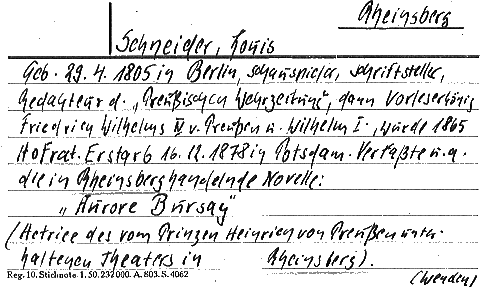 Rheinsberg
Schneider, Louis
Geb. 29.4.1805 in Berlin, Schauspieler, Schriftsteller,
Redakteur d. „Preußischen Wehrzeitung", dann Vorleser König
Friedrich Wilhelms IV v. Preußen u. Wilhelm I., wurde 1865
Hofrat. Er starb 16.12.1878 in Potsdam. Verfaßte u.a.
die in Rheinsberg handelnde Novelle:
„Aurore Bursay"
(Actrice des vom Prinzen Heinrich von Preußen unter-
haltenen Theaters in Rheinsberg).
Reg. 10. Stichnote 1. 50. 232000. A. 803. S. 4062
(wenden)